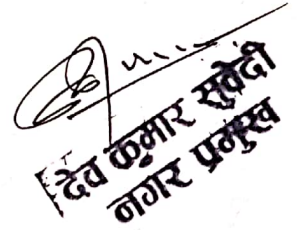 देव कुमार सुवेदी
नगर प्रमुख